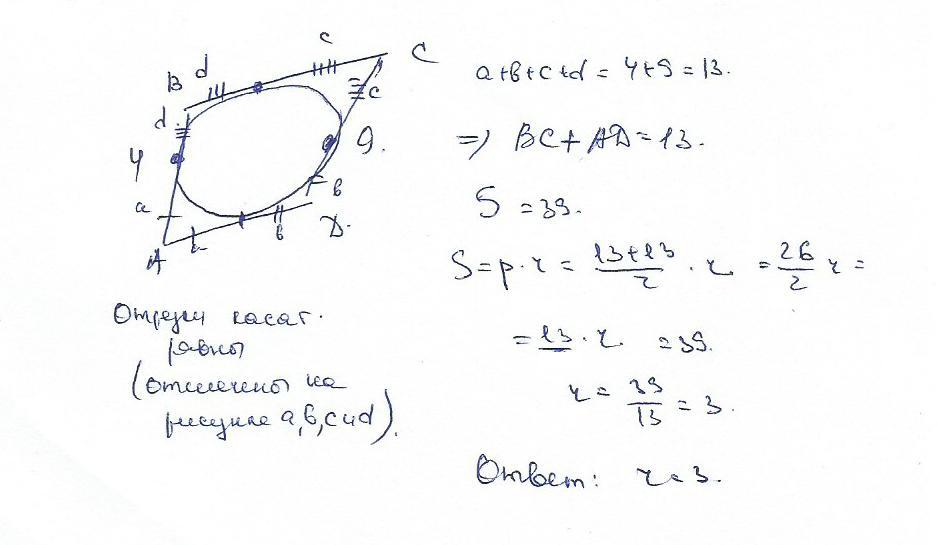 c
C
B d
d
c
4
9.
a
в
a
в
A
D.
Отрезки касат.
равны
(отмечены на
рисунке a,в,c и d).
a+в+c+d = 4+9 = 13.
=> BC + AD = 13.
S = 39.
S = p·r = 13+13/2 · r = 26/2 r =
= 13 · r = 39.
r = 39/13 = 3.
Ответ: r = 3.